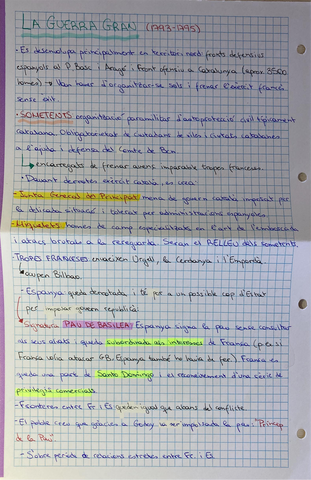 LA GUERRA GRAN (1793-1795)
· Es desenvolupa principalment en territori nord: fronts defensius
espanyols al P. Basc i Aragó i Front ofensiu a Catalunya (aprox 3500
homes) → Van haver d'organitzar-se sols i frenar l'exèrcit francès
sense èxit.
· SOMETENTS: organització paramilitar d'autoprotecció civil típicament
catalana. Obligatorietat de ciutatans de viles i ciutats catalanes
a l'ajuda i defensa del Comte de Bcn.
↳ encarregats de frenar avenç imparable tropes franceses.
· Davant derrotes exèrcit català, es crea:
- Junta General del Principat: mena de govern català impulsat per
la delicada situació i tolerat per administracions espanyoles.
- Miquelets: homes de camp especialitzats en l'art de l'emboscada
i atacs brutals a la rereguarda. Seran el RELLEU dels sometents.
· TROPES FRANCESES envaeixen Urgell, la Cerdanya i l'Empordà
ocupen Bilbao.
- Espanya queda derrotada i té por a un possible cop d'Estat
per imposar govern republicà:
Signatura PAU DE BASILEA: Espanya signa la pau sense consultar
als seus aliats i queda subordinada als interessos de França (p.e si
França volia atacar GB, Espanya també ho havia de fer). França es
queda una part de Santo Domingo i el reconeixement d'una sèrie de
privilegis comercials.
- Fronteres entre Fr. i Es queden igual que abans del conflicte.
- El poble creu que gràcies a Godoy, va ser impulsada la pau: "Príncep
de la Pau".
- S'obre període de relacions estretes entre Fr. i Es